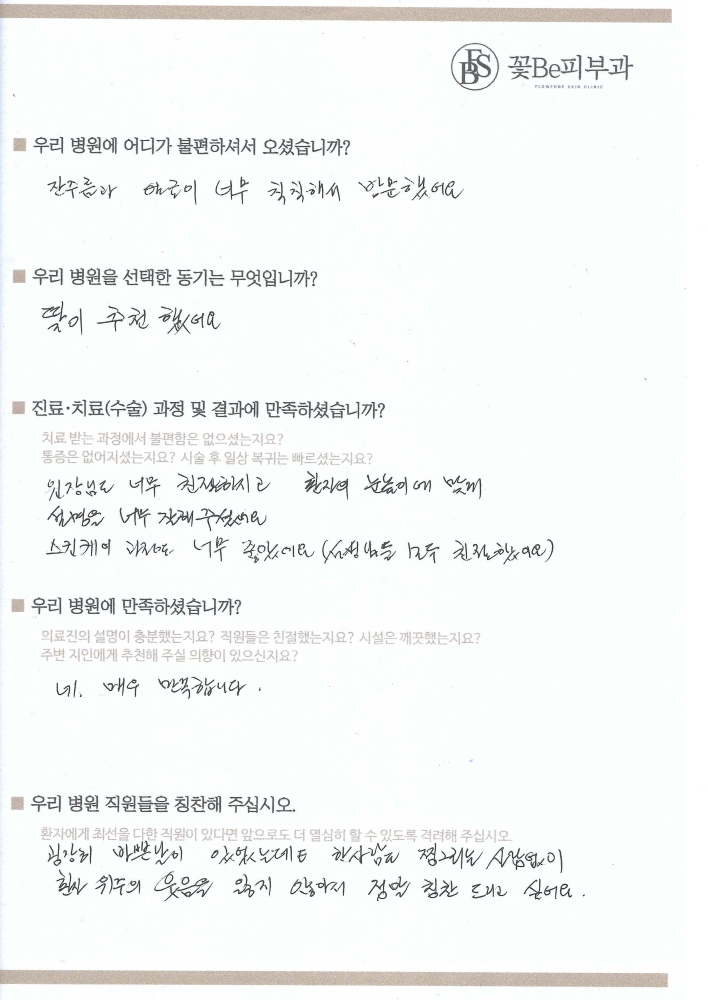 BFS 꽃Be피부과
FLOWERBE SKIN CLINIC
우리 병원에 어디가 불편하셔서 오셨습니까?
잔주름과 얼굴이 너무 칙칙해서 방문했어요
우리 병원을 선택한 동기는 무엇입니까?
딸이 추천 했어요
진료·치료(수술) 과정 및 결과에 만족하셨습니까?
치료 받는 과정에서 불편함은 없으셨는지요?
통증은 없어지셨는지요? 시술 후 일상 복귀는 빠르셨는지요?
원장님도 너무 친절하시고 환자의 눈높이에 맞게
설명을 너무 잘해주셨어요
스킨케어 과정도 너무 좋았어요 (선생님들 모두 친절했어요)
우리 병원에 만족하셨습니까?
의료진의 설명이 충분했는지요? 직원들은 친절했는지요? 시설은 깨끗했는지요?
주변 지인에게 추천해 주실 의향이 있으신지요?
네. 매우 만족합니다.
우리 병원 직원들을 칭찬해 주십시오.
환자에게 최선을 다한 직원이 있다면 앞으로도 더 열심히 할 수 있도록 격려해 주십시오.
굉장히 바쁜날이 있었는데도 한사람도 찡그리는 사람없이
환자 위주의 웃음을 잃지 않아서 정말 칭찬 드리고 싶어요.